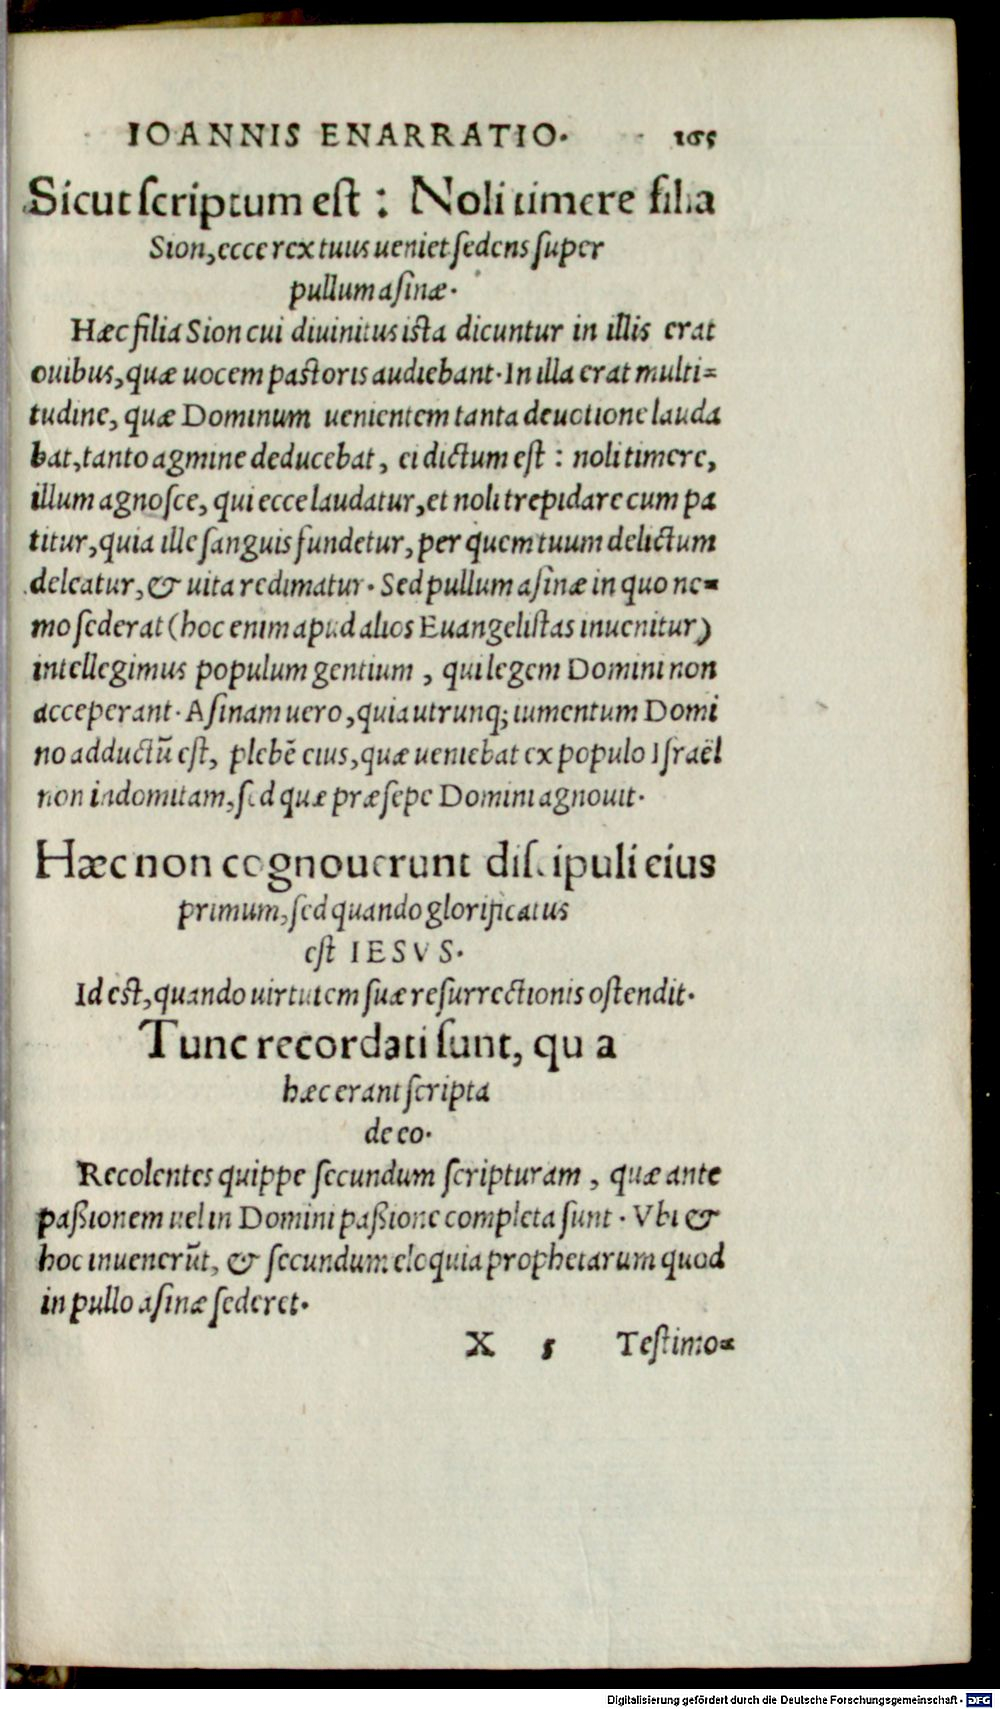 IOANNIS ENARRATIO. 165
Sicut scriptum est : Noli timere filia
Sion, ecce rex tuus ueniet sedens super
pullum asinæ.
Hæc filia Sion cui diuinitus ista dicuntur in illis erat
ouibus, quæ uocem pastoris audiebant. In illa erat multi=
tudine, quæ Dominum uenientem tanta deuotione lauda
bat, tanto agmine deducebat, ei dictum est : noli timere,
illum agnosce, qui ecce laudatur, et noli trepidare cum pa
titur, quia ille sanguis fundetur, per quem tuum delictum
deleatur, & uita redimatur. Sed pullum asinæ in quo ne=
mo sederat (hoc enim apud alios Euangelistas inuenitur)
intellegimus populum gentium, qui legem Domini non
acceperant. Asinam uero, quia utrunq; iumentum Domi
no adductū est, plebē eius, quæ ueniebat ex populo Israël
non indomitam, sed quæ præsepe Domini agnouit.
Hæc non cognouerunt discipuli eius
primum, sed quando glorificatus
est IESVS.
Id est, quando uirtutem suæ resurrectionis ostendit.
Tunc recordati sunt, qu a
hæc erant scripta
de eo.
Recolentes quippe secundum scripturam, quæ ante
paßionem uel in Domini paßione completa sunt. Vbi &
hoc inuenerūt, & secundum eloquia prophetarum quod
in pullo asinæ sederet.
X 5 Testimo=
Digitalisierung gefördert durch die Deutsche Forschungsgemeinschaft - DFG